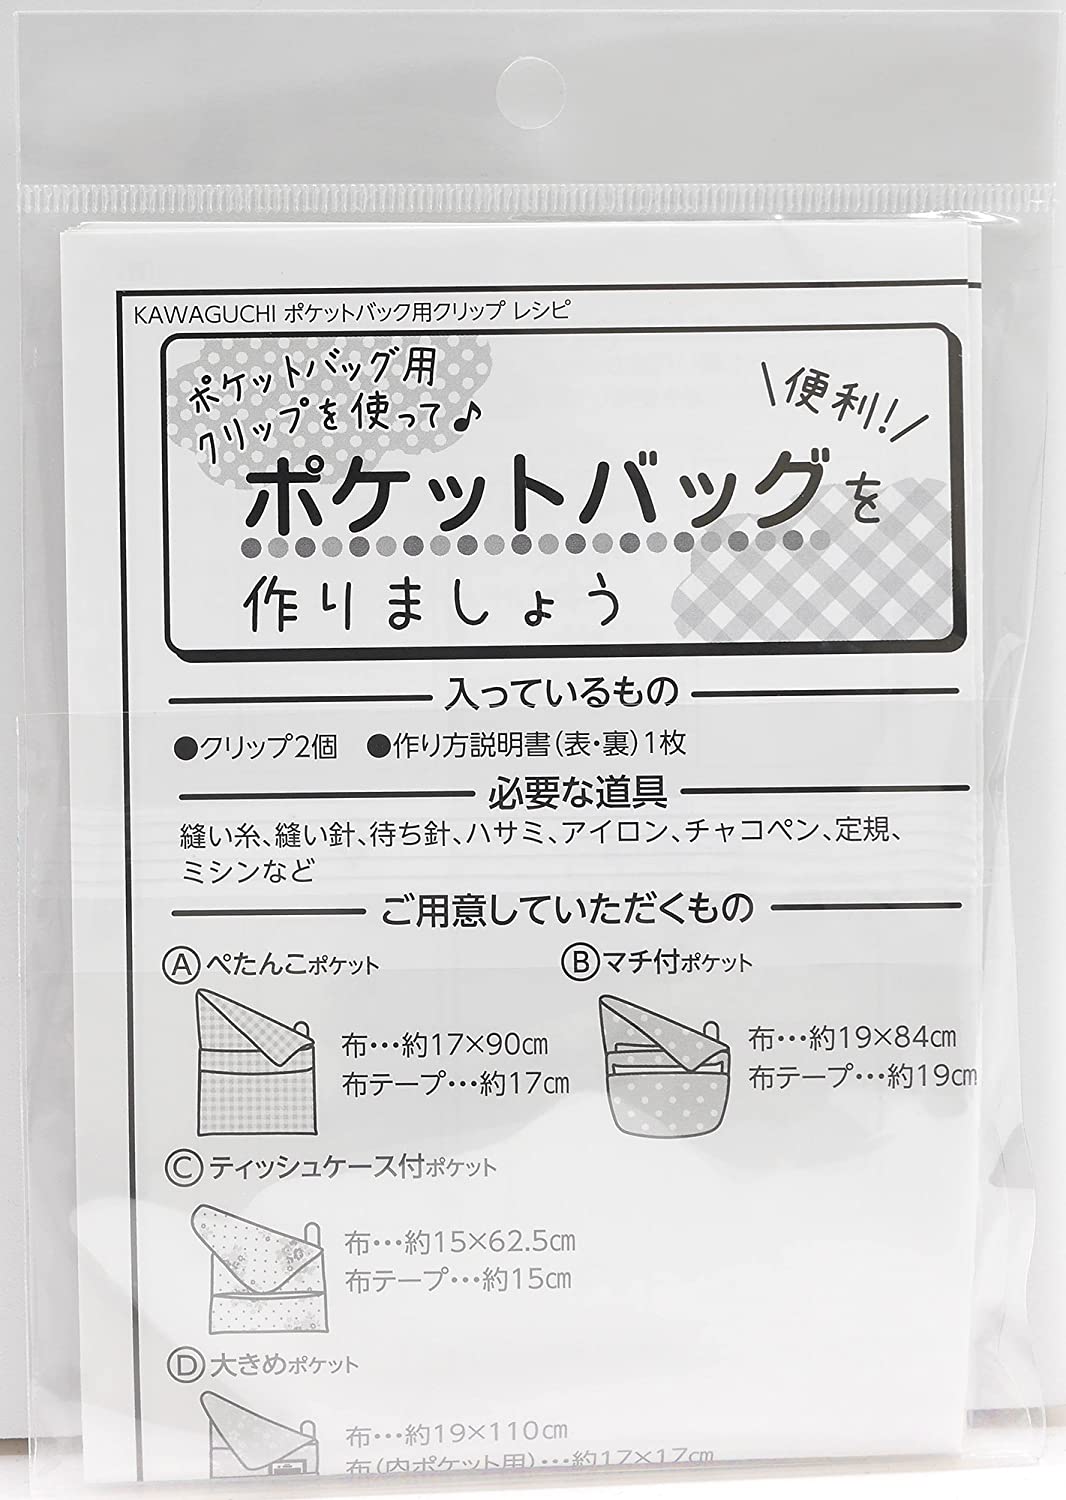 KAWAGUCHI ポケットバック用クリップ レシピ
ポケットバッグ用
クリップを使って♪
便利!
ポケットバッグを
作りましょう
入っているもの
●クリップ2個 ●作り方説明書(表・裏)1枚
必要な道具
縫い糸、縫い針、待ち針、ハサミ、アイロン、チャコペン、定規、
ミシンなど
ご用意していただくもの
Ⓐぺたんこポケット
布…約17×90㎝
布テープ…約17㎝
Ⓑマチ付ポケット
布…約19×84㎝
布テープ…約19㎝
Ⓒティッシュケース付ポケット
布…約15×62.5㎝
布テープ…約15㎝
Ⓓ大きめポケット
布…約19×110㎝
布(内ポケット用)…約17×17㎝